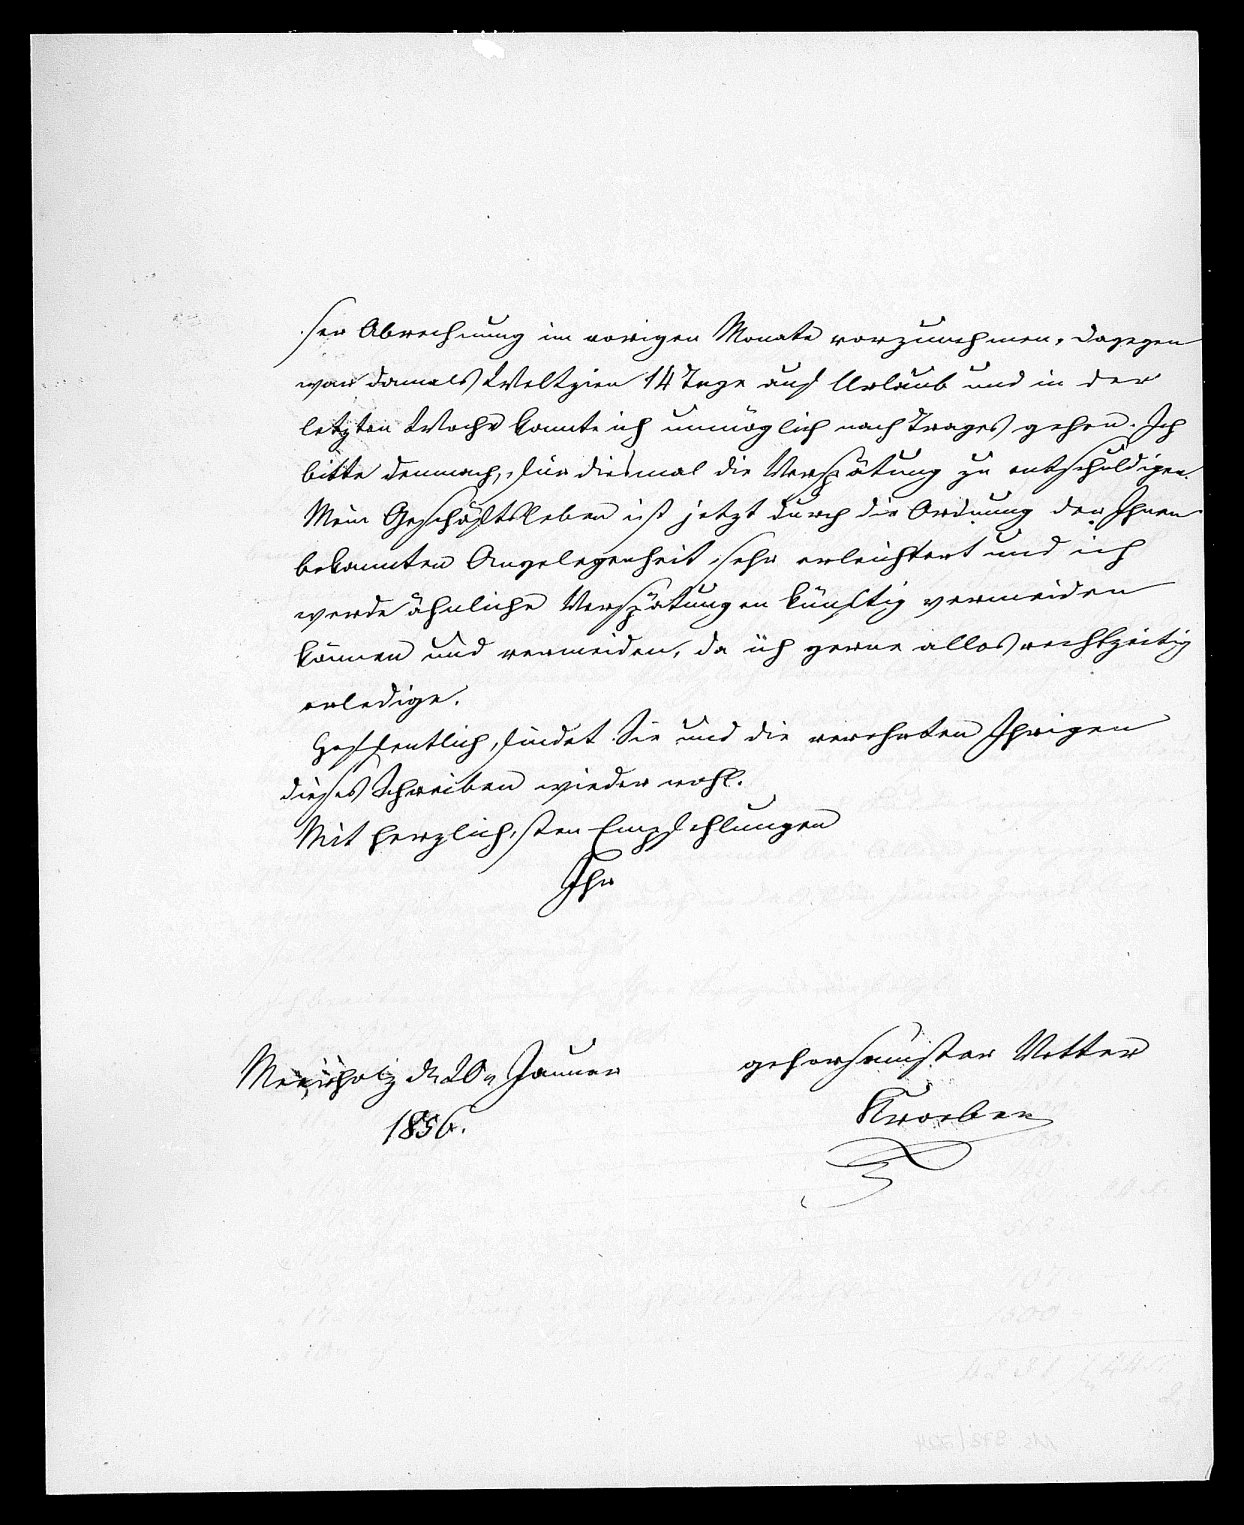 ser Abrechnung im vorigen Monate vorzunehmen, dagegen
war damals Weltzien 14 Tage auf Urlaub und in der
letzten Woche konnte ich unmöglich nach Trages gehen. Ich
bitte demnach, für diesmal die Verspätung zu entschuldigen.
Mein Geschäftsleben ist jetzt durch die Ordnung der Ihnen
bekannten Angelegenheit sehr erleichtert und ich
werde ähnliche Verspätungen künftig vermeiden
können und vermeiden, da ich gerne alles rechtzeitig
erledige.
Hoffentlich findet Sie und die verehrten Ihrigen
dieses Schreiben wieder wohl.
Mit herzlichsten Empfehlungen
Ihr
gehorsamster Vetter
Kroeber
Meerholz d. 20n Januar
1856.